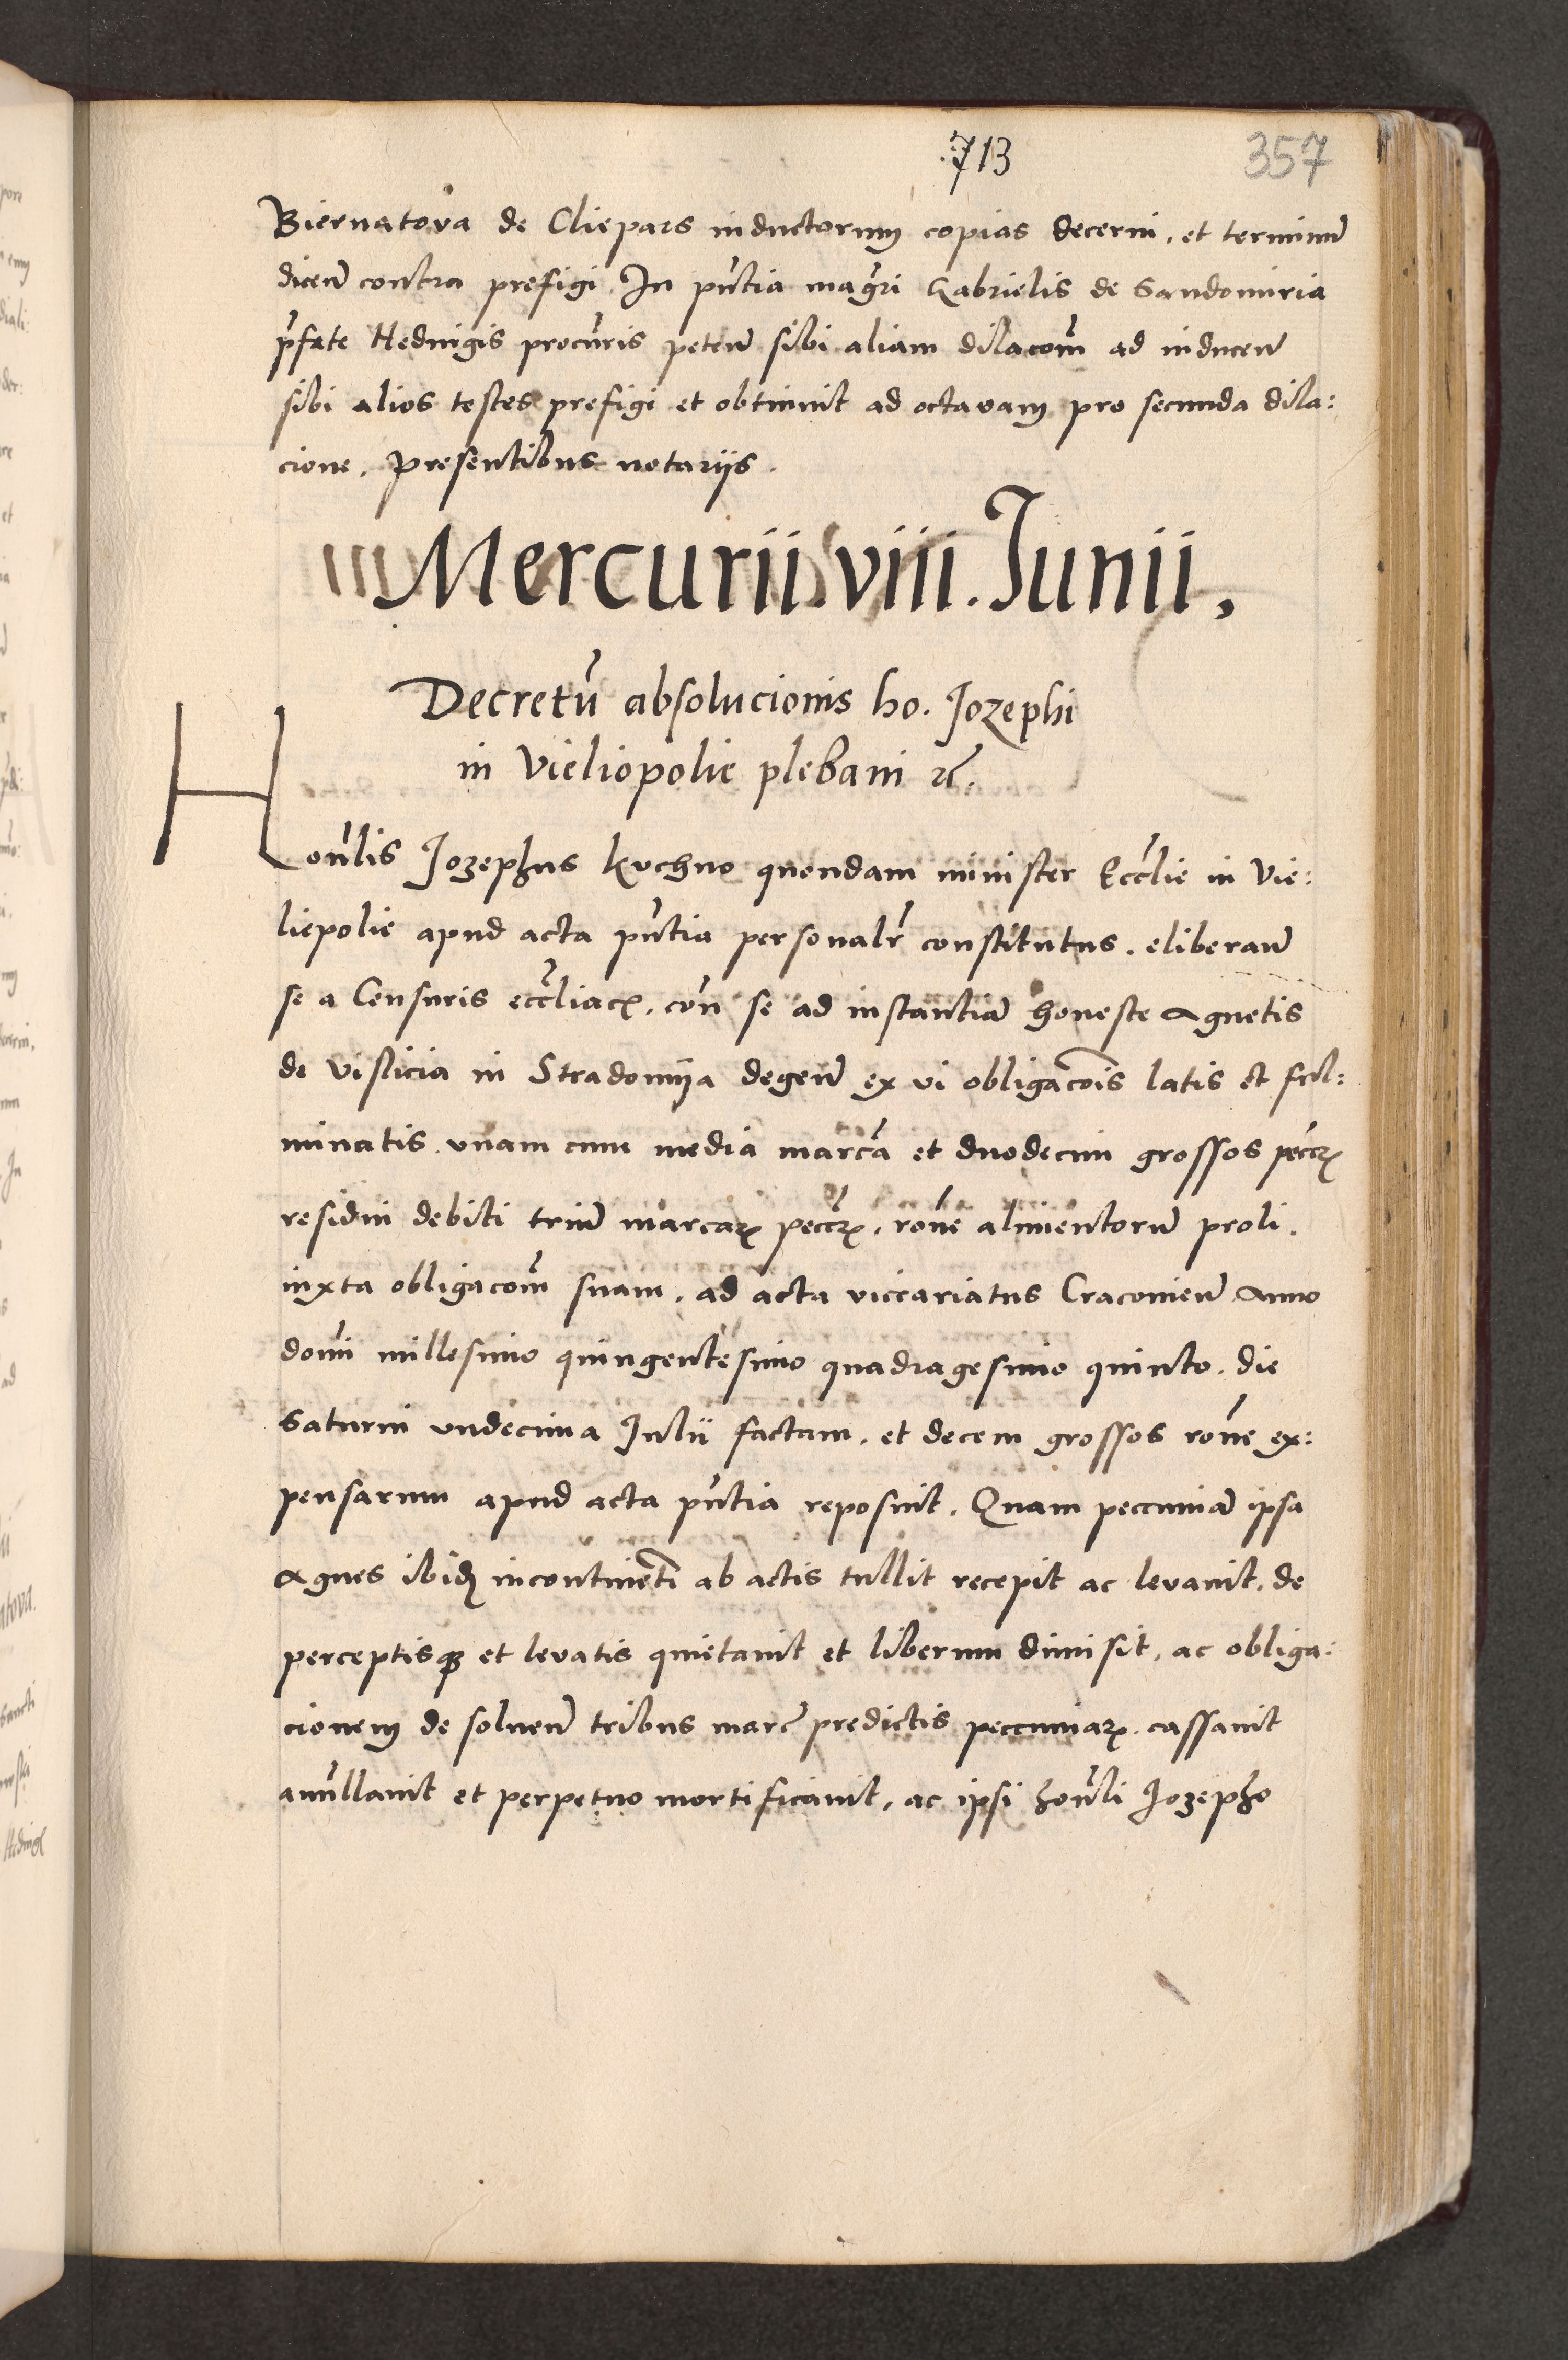 713 357
Biernatova de Cliepars inductorum copias decerni, et terminū
dicen̄ contra prefigi. In pn̄tia magr̄i Gabrielis de Sandomiria
p̄fate Hedvigis procur̄is peten̄ sibi aliam dilacōm̄ ad inducen̄
sibi alios testes prefigi et obtinuit ad octavam pro secunda dila:
cione. Presentibus notariis.
Mercurii. viii. Junii,
Decretū absolucionis ho. Jozephi
in Vieliopolie plebani
Hon̄lis Jozephus Kuchno quondam minister Eccl̄ie in Vie:
liepolie apud acta pn̄tia personalr̄ constitutus. eliberan̄
se a Censuris eccl̄iacꝝ, con̄ se ad instantiā honeste Agnetis
de Vislicia in Stradomija degen̄ ex vi obligacōis latis et ful:
minatis. vnam cum media marcā et duodecim grossos pecc̄ꝝ
residui debiti triū marcaꝝ pecc̄ꝝ, rōne alimentorū proli.
iuxta obligacōm̄ suam, ad acta vicariatus Cracovien̄ Anno
domī millesimo quingentesimo quadragesimo quinto. die
Saturni vndecima Julii factam, et decem grossos rōne ex:
pensarum apud acta pn̄tia reposuit. Quam peccuniā ipsa
Agnes ibidꝫ incontinētī ab actis tullit recepit ac levavit, de
perceptisqꝫ et levatis quietavit et liberum dimisit, ac obliga:
cionem de solven̄ tribus marc̄ predictis peccuniaꝝ. cassavit
anūllavit et perpetuo mortificavit, ac ipsi hon̄li Jozepho